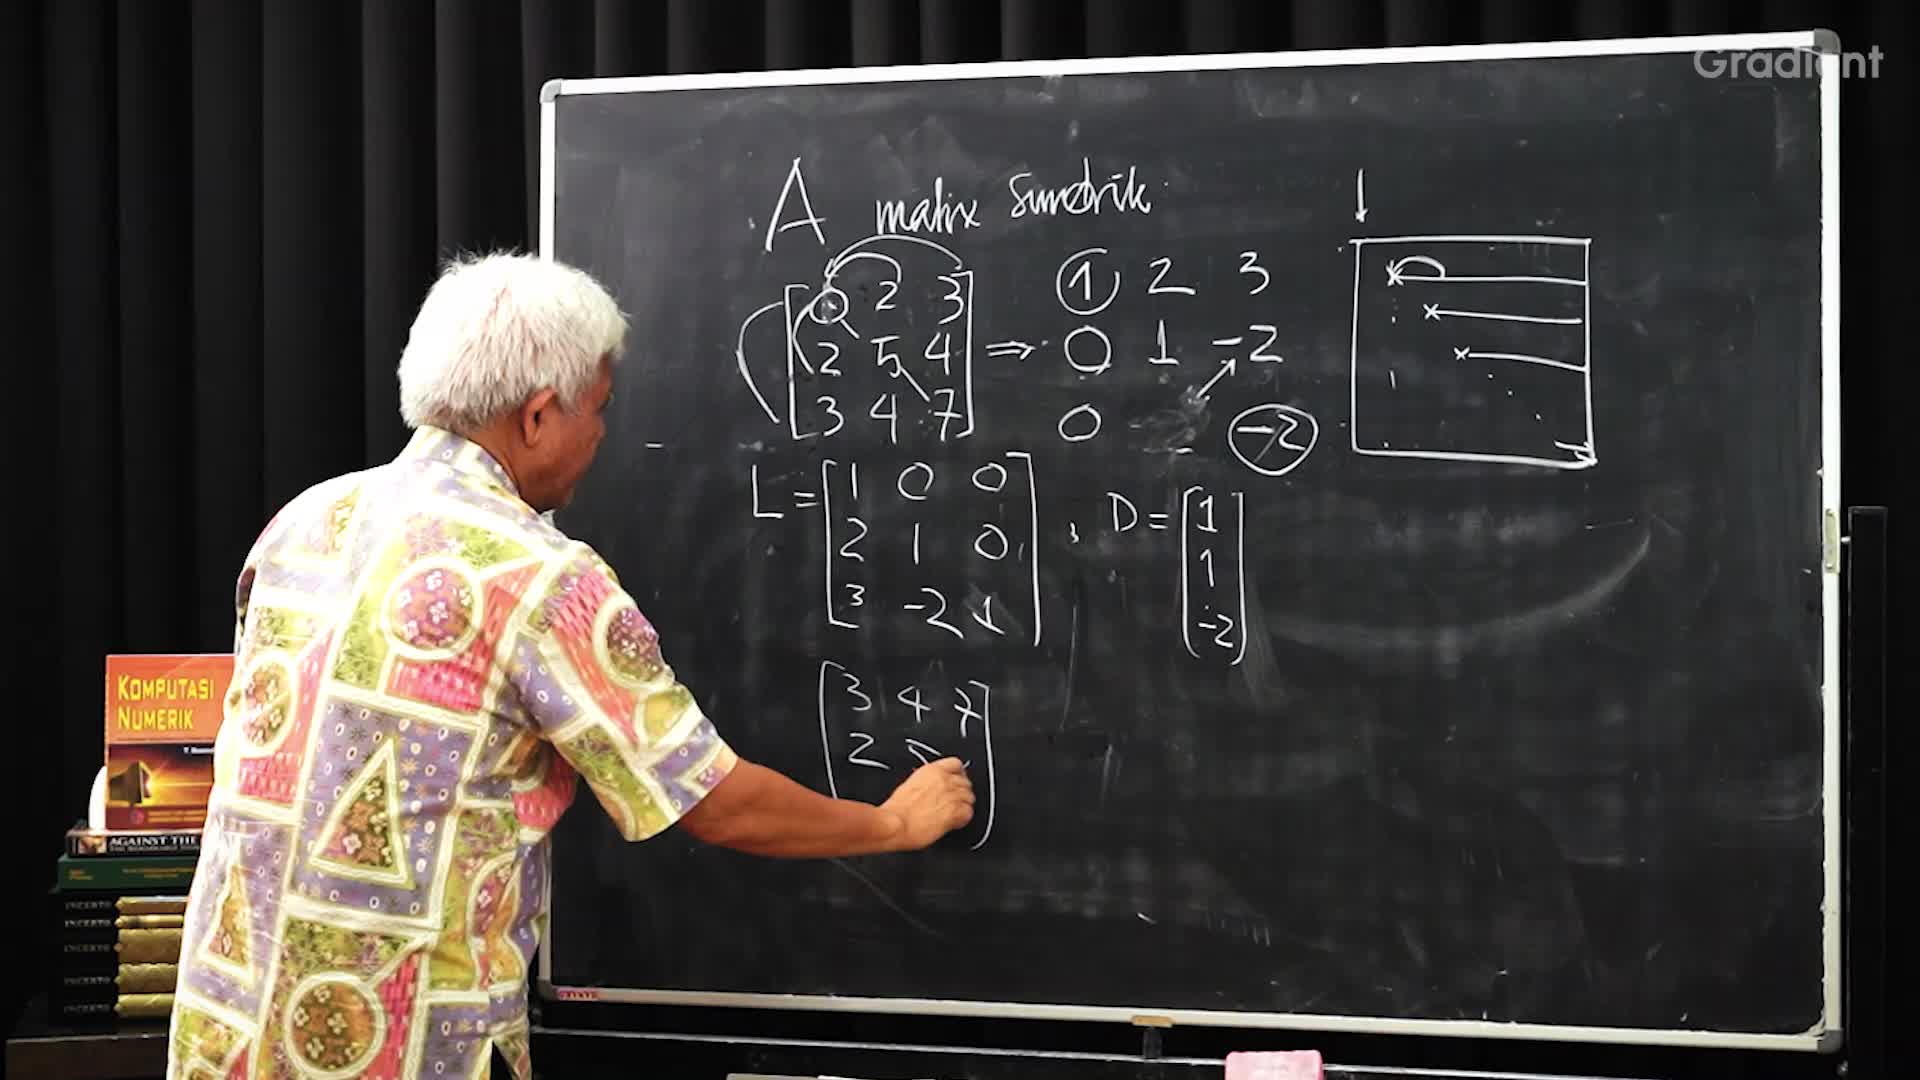 Gradient
A matrix simetrik
2 3 ① 2 3
2 5 4 ⇒ 0 1 -2
3 4 7 0 -2
L = 1 0 0 , D = 1
2 1 0 1
3 -2 1 -2
3 4 7
2
KOMPUTASI
NUMERIK
AGAINST THE
INCERTO
INCERTO
INCERTO
INCERTO
INCERTO